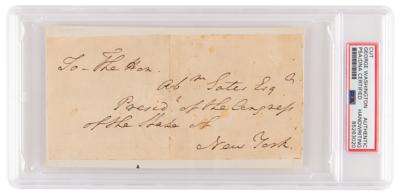 To—The Hon.
Abm. Yates Esqr.
Presidt. of the Congress
of the State of
New York.
CUT
GEORGE WASHINGTON
PSA/DNA CERTIFIED
AUTHENTIC
HANDWRITING
85263020
PSA